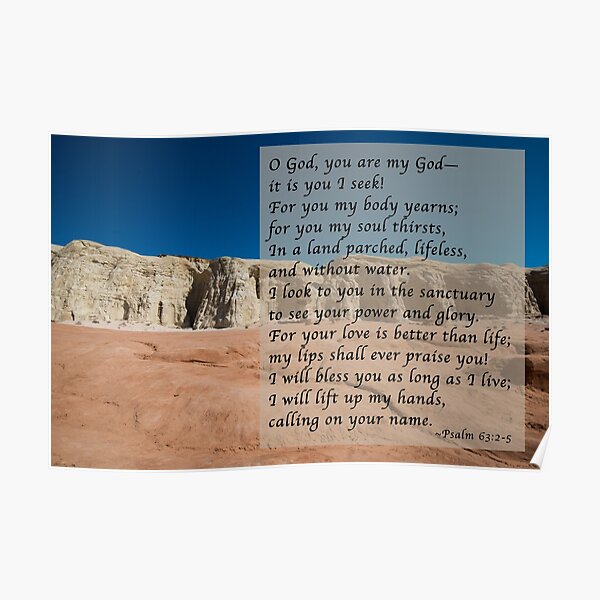 O God, you are my God—
it is you I seek!
For you my body yearns;
for you my soul thirsts,
In a land parched, lifeless,
and without water.
I look to you in the sanctuary
to see your power and glory.
For your love is better than life;
my lips shall ever praise you!
I will bless you as long as I live;
I will lift up my hands,
calling on your name.
~Psalm 63:2-5